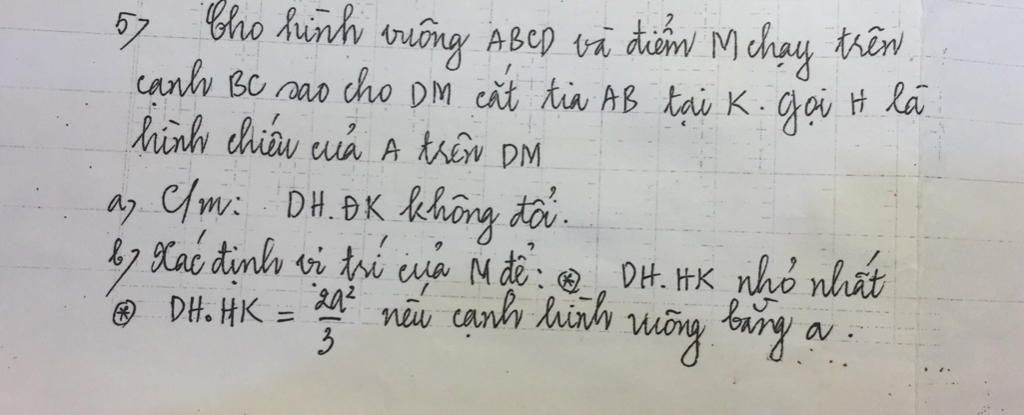 5) Cho hình vuông ABCD và điểm M chạy trên
cạnh BC sao cho DM cắt tia AB tại K. Gọi H là
hình chiếu của A trên DM
a) C/m: DH.ĐK không đổi.
b) Xác định vị trí của M để: ⊛ DH.HK nhỏ nhất
⊛ DH.HK = 2a²/3 nếu cạnh hình vuông bằng a.